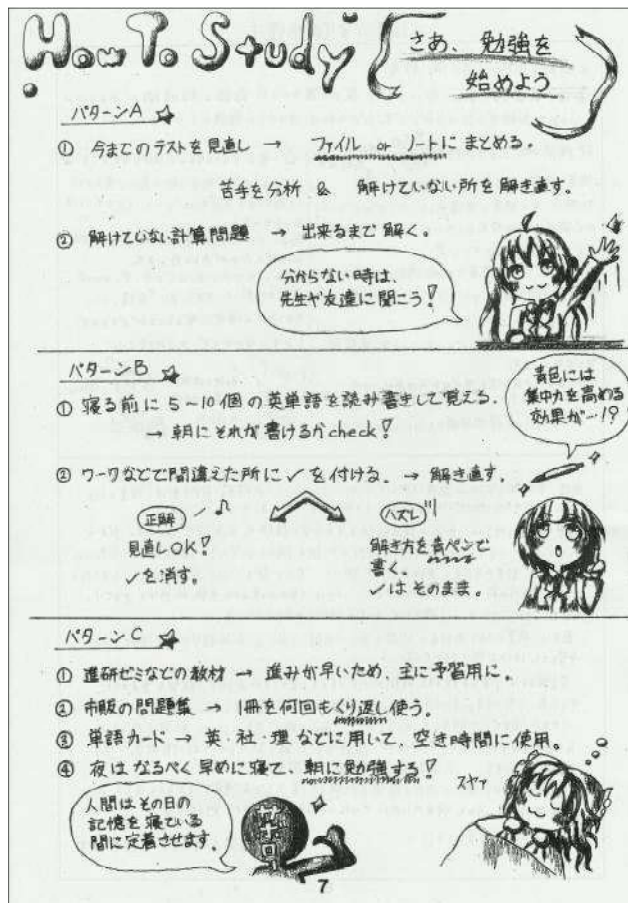 How To Study
さあ、勉強を
始めよう
パターンA
① 今までのテストを見直し → ファイル or ノートにまとめる。
苦手を分析 & 解けていない所を解き直す。
② 解けてない計算問題 → 出来るまで解く。
分からない時は、
先生や友達に聞こう!
パターンB
① 寝る前に5~10個の英単語を読み書きして覚える。
→ 朝にそれが書けるかcheck!
青色には
集中力を高める
効果が…!?
② ワークなどで間違えた所に✓を付ける。 → 解き直す。
正解
見直しOK!
✓を消す。
ハズレ
解き方を青ペンで
書く。
✓はそのまま。
パターンC
① 進研ゼミなどの教材 → 進みが早いため、主に予習用に。
② 市販の問題集 → 1冊を何回もくり返し使う。
③ 単語カード → 英・社・理などに用いて、空き時間に使用。
④ 夜はなるべく早めに寝て、朝に勉強する!
スヤァ
人間はその日の
記憶を寝ている
間に定着させます。
7